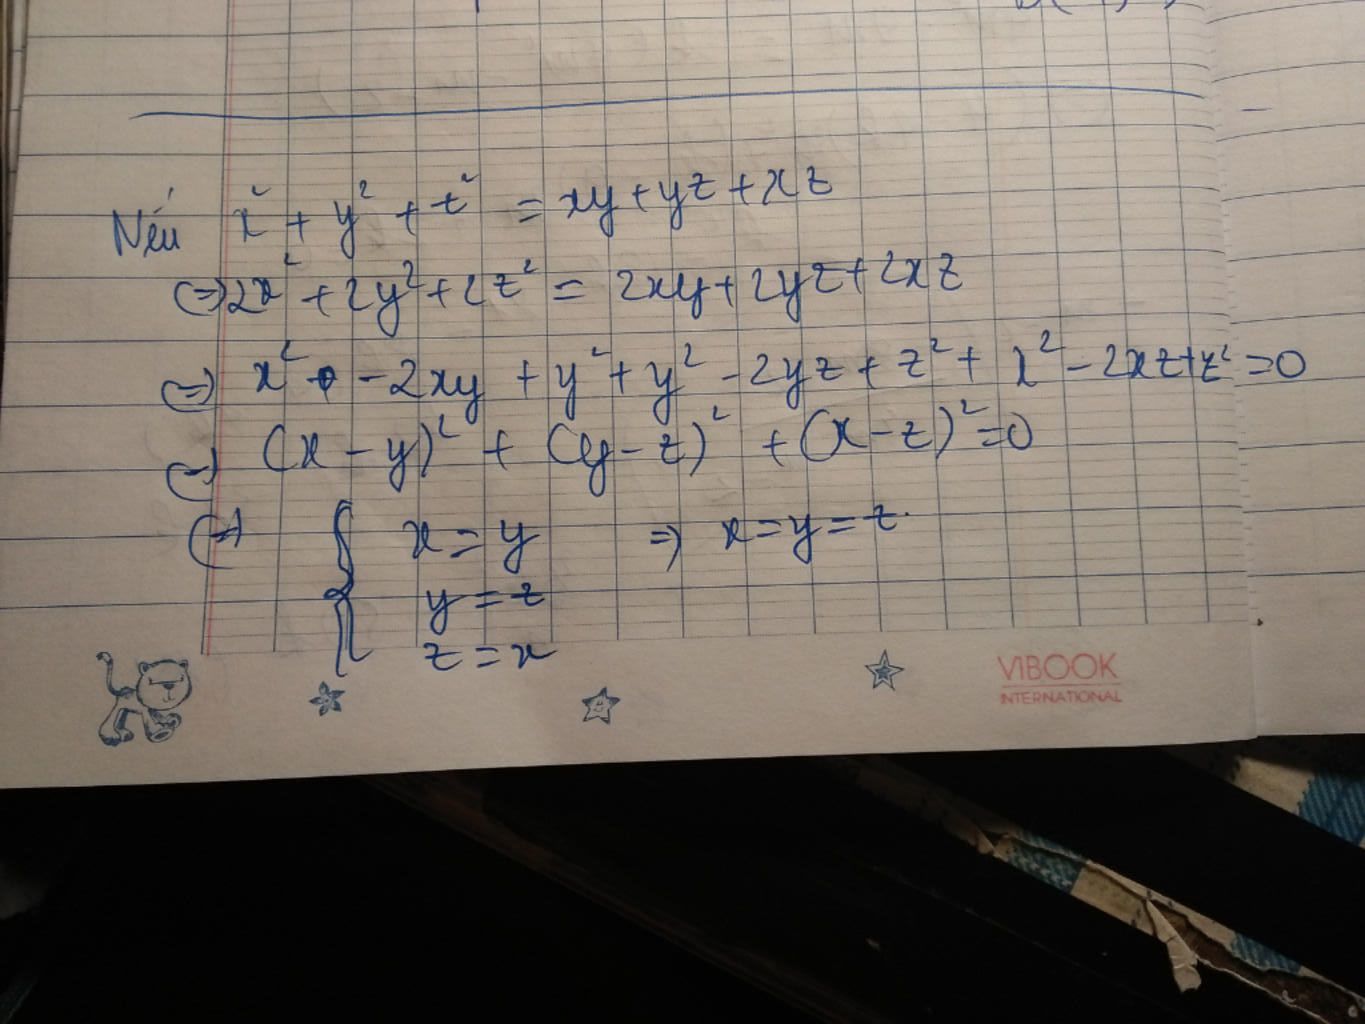 Nếu x² + y² + z² = xy + yz + xz
(=) 2x² + 2y² + 2z² = 2xy + 2yz + 2xz
(=) x² - 2xy + y² + y² - 2yz + z² + x² - 2xz + z² = 0
(=) (x - y)² + (y - z)² + (x - z)² = 0
(=) { x = y => x = y = z.
y = z
z = x
VIBOOK
INTERNATIONAL